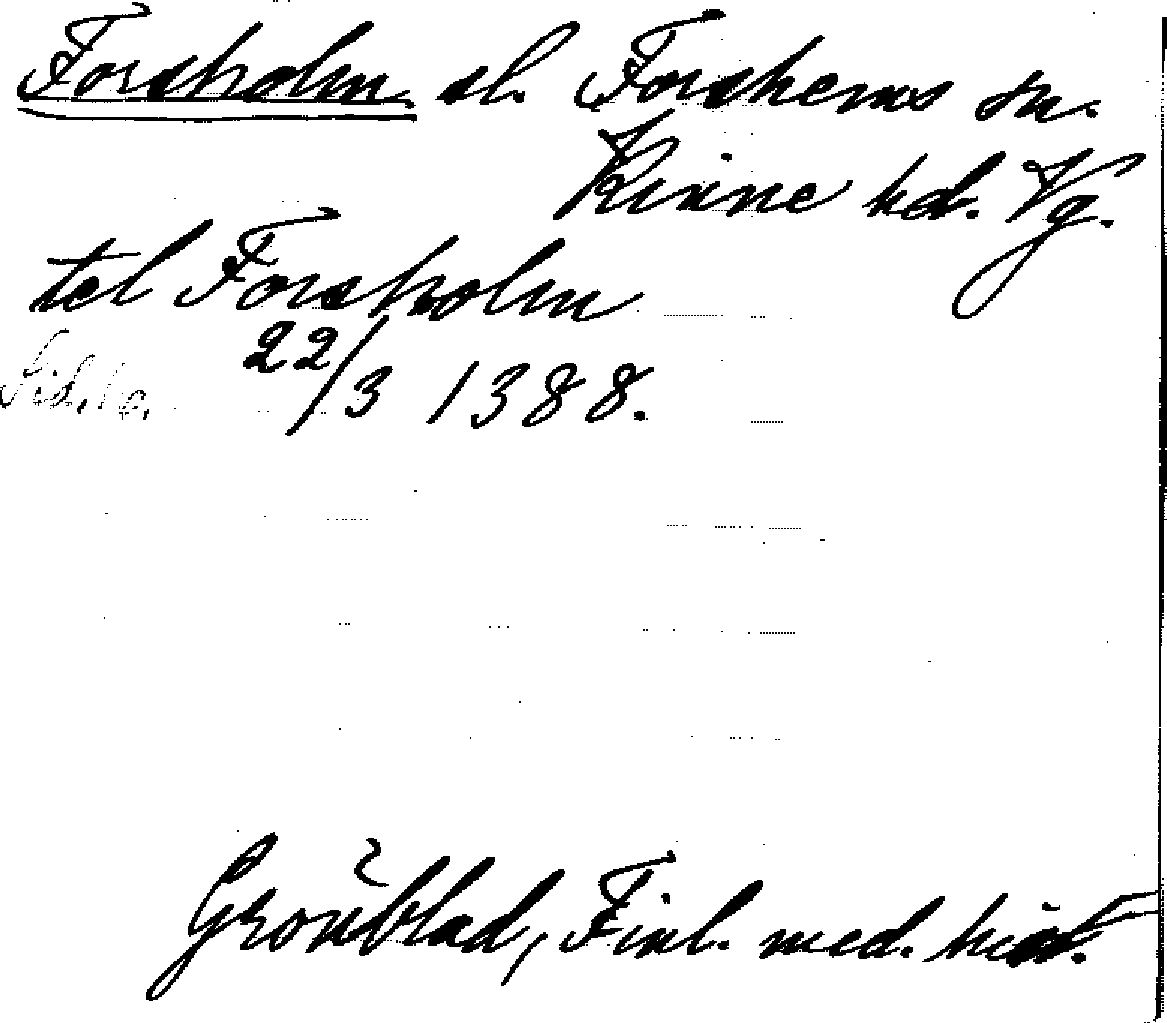 Forsholm sl. Forshems sn.
Kinne hd. Vg.
tel Forsholm
22/3 1388.
Grönblad, Finl. med. hist.